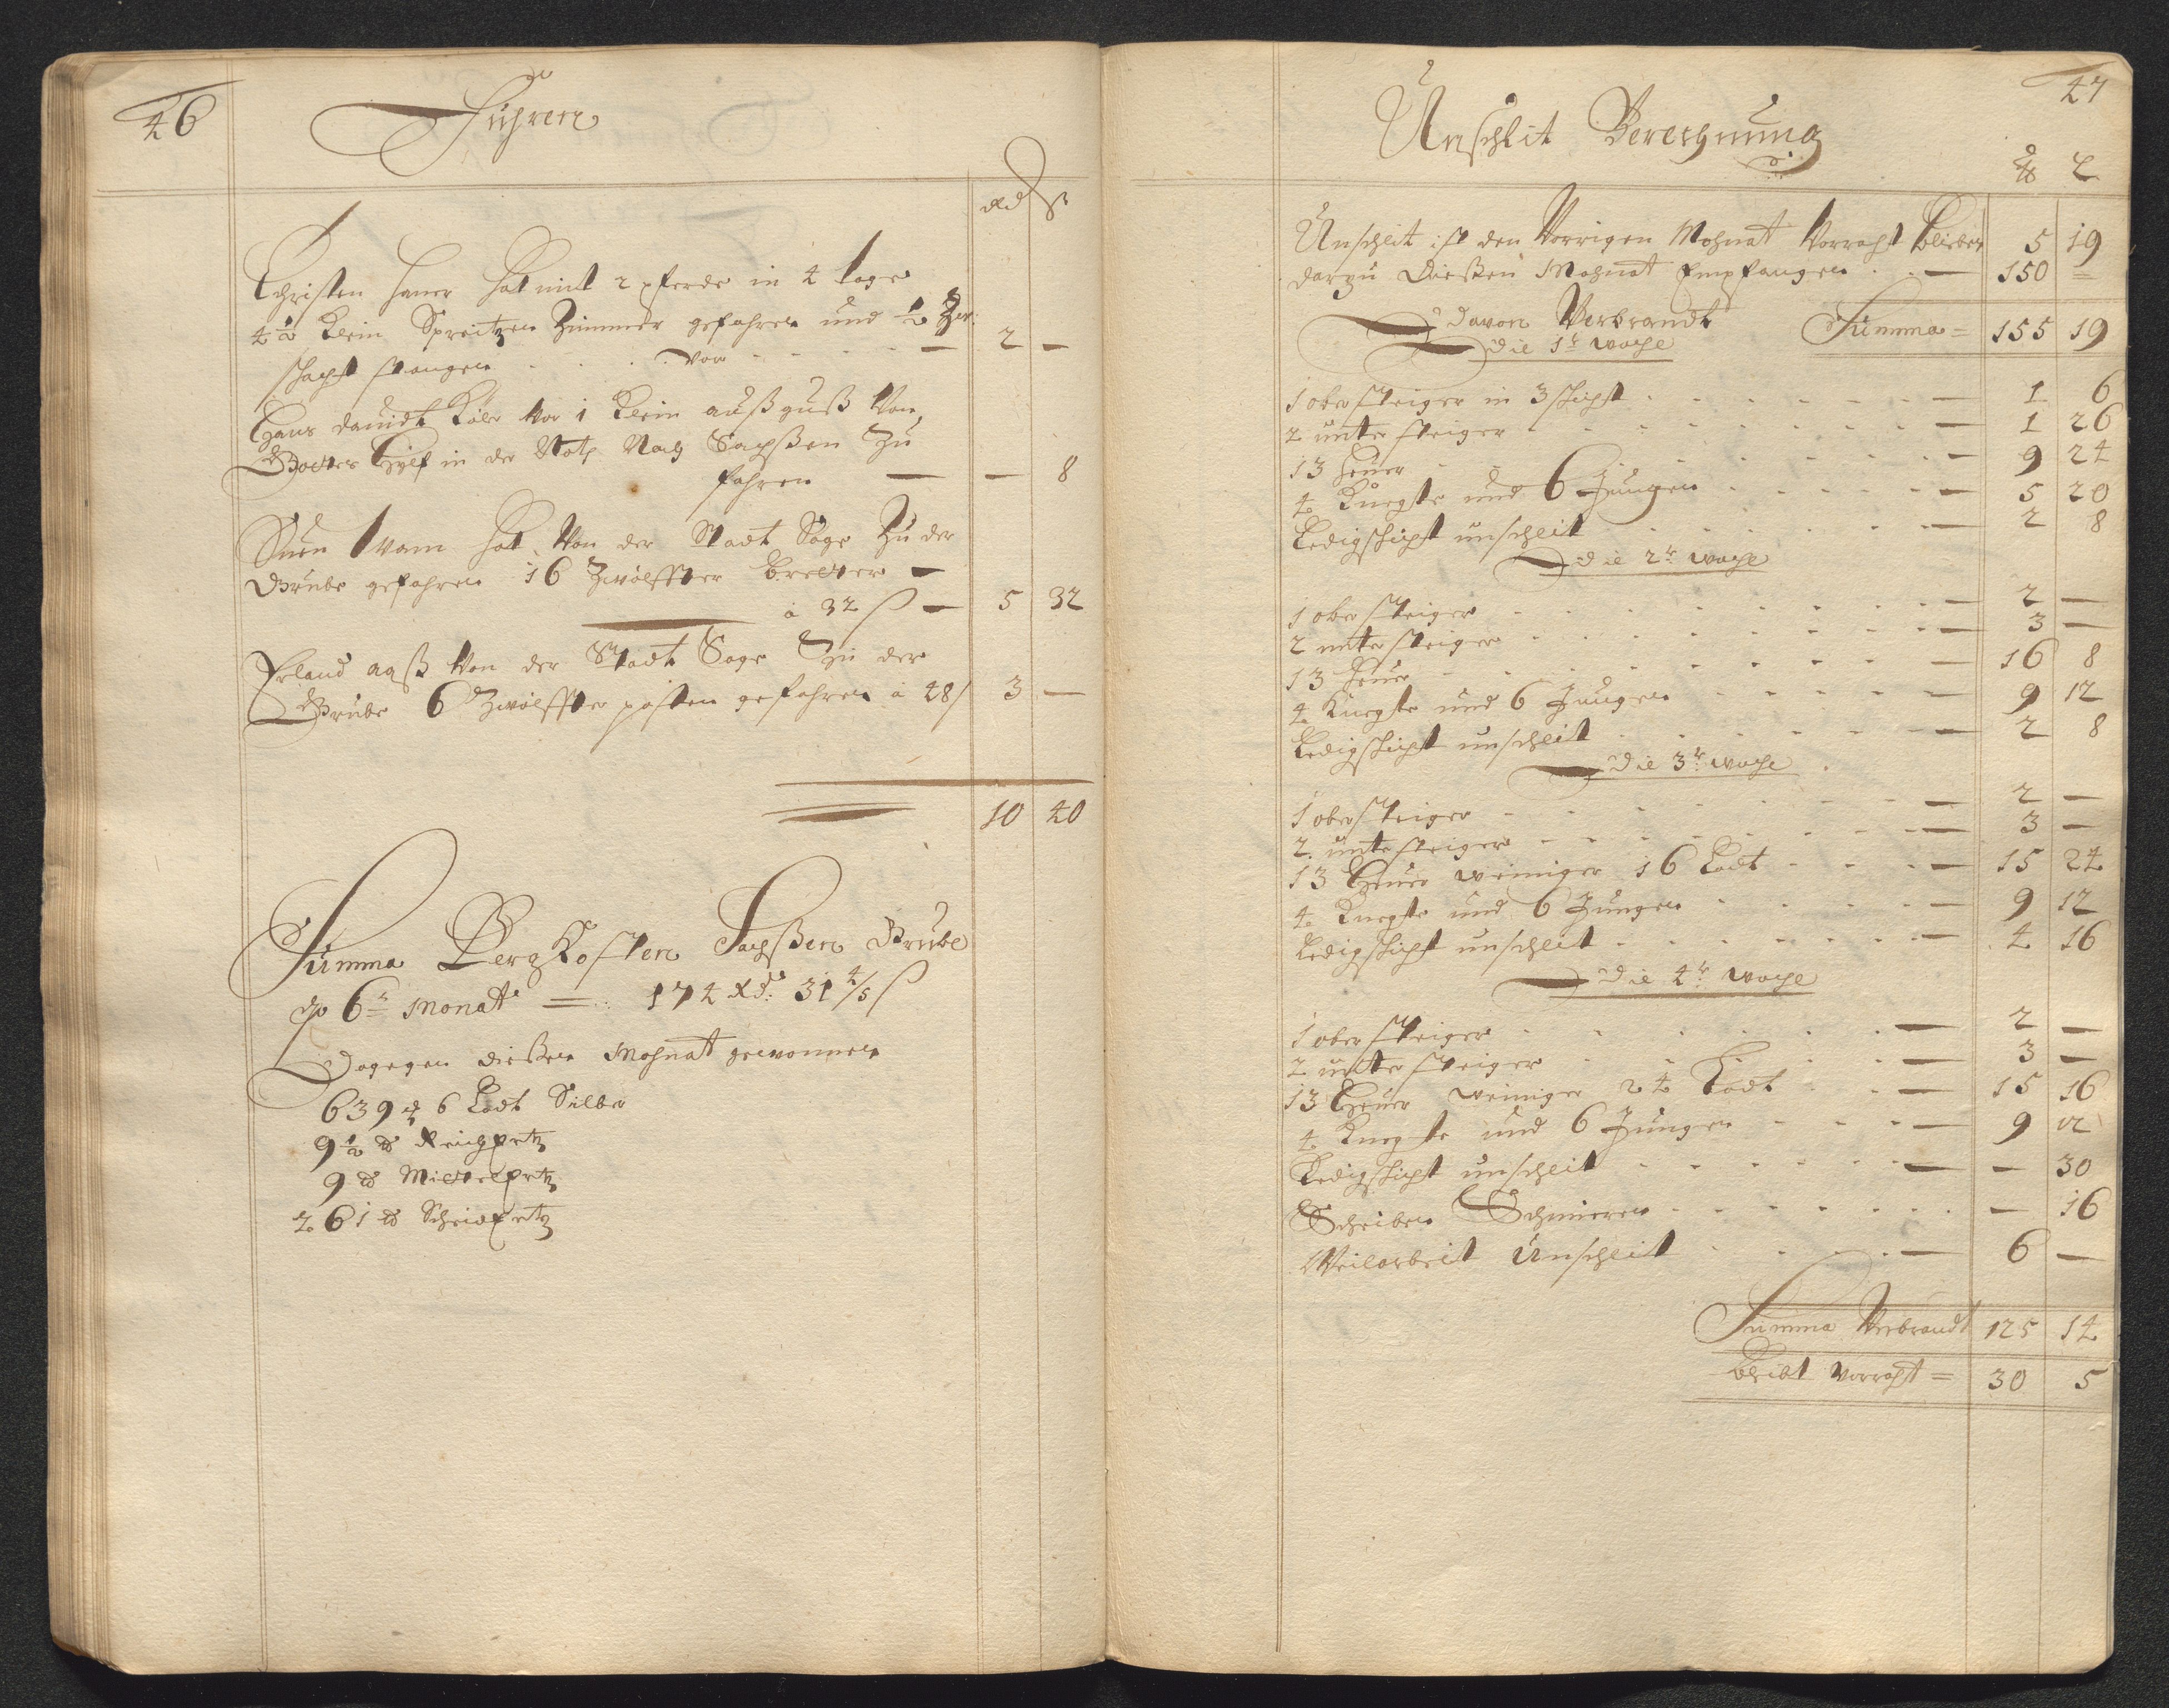 46
Fuhren
Rd ß
Christen Haner hat mit 2 pferde in 4 tage
4½ klein Spreitzen Zimmer gefahren und ½ Zw:
schacht stangen . . . vor — 2 —
Hans dauidt Köler vor 1 klein außguß Von
Gottes Hylf in der Noth Nach Sachßen Zu
fahren — — 8
Suen Vram hat Von der Stadt Sage Zu der
Grube gefahren 16 Zwölffter bretter —
à 32 ß — 5 32
Erland aaß Von der Stadt Sage Zu der
Grube 6 Zwölffter posten gefahren à 48/ 3 —
10 40
Summa BergKosten Sachßen Grube
6t Monat = 174 Rd: 31 4/5 ß
Dagegen dießen Mohnat gewonnen
639 6 Lodt Silber
9½ ℔ Reichertz
9 ℔ Mittelertz
261 ℔ Scheidertz
47
Unschlit Berechnung
℔ L
Unschleit ist den Vorrigen Mohnat Vorraht blieben 5 19
darzu dießen Mohnat Empfangen . . — 150 =
Davon Verbrandt Summa = 155 19
die 1t woche
1 obersteiger in 3 schicht — 1 6
2 untersteiger — 1 26
13 heuer — 9 24
4 Knechte und 6 Jungen — 5 20
Ledigschicht unschleit — 2 8
die 2t woche
1 obersteiger — 2 —
2 untersteiger — 3 —
13 heuer — 16 8
4 Knechte und 6 Jungen — 9 12
Ledigschicht unschleit — 2 8
die 3t woche
1 obersteiger — 2 —
2 untersteiger — 3 —
13 Heuer weiniger 16 Lodt — 15 24
4 Knechte und 6 Jungen — 9 12
Ledigschicht unschleit — 4 16
die 4t woche
1 obersteiger — 2 —
2 untersteiger — 3 —
13 Heuer weiniger 24 Lodt — 15 16
4 Knechte und 6 Jungen — 9 12
Ledigschicht unschleit — — 30
Scheiben Schmieren — 16
Weilarbeit Unschleit — 6 —
Summa Verbrandt 125 14
bleibt Vorraht = 30 5